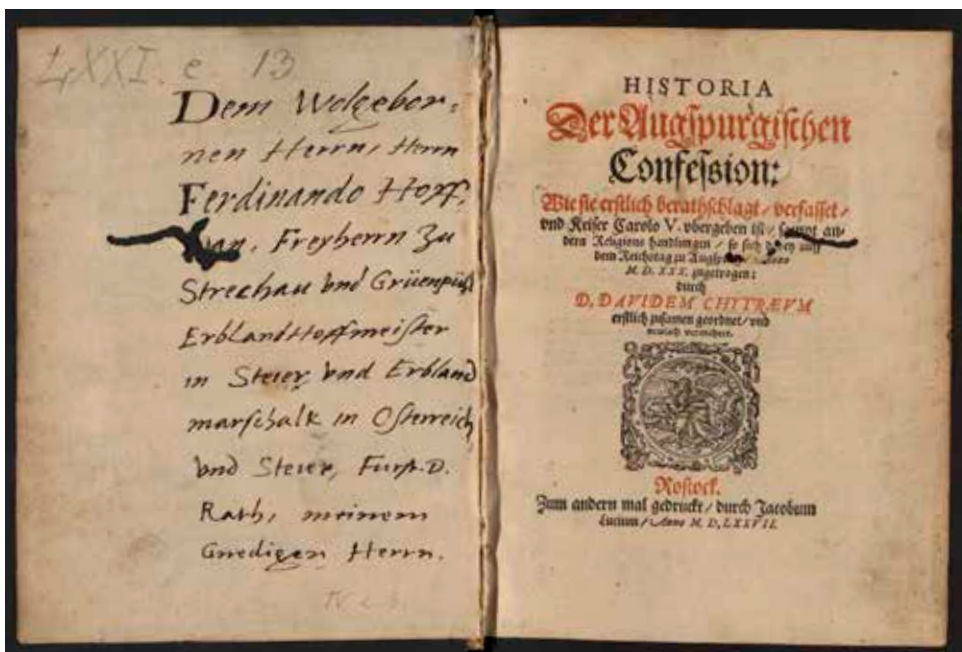 LXXI. e 13
Dem Wolgebor⸗
nen Herrn, Herrn
Ferdinando Hoff⸗
man, Freyherrn zu
Strechau vnd Grüenpüchl
ErblandtHoffmeister
in Steier, vnd Erbland
marschalk in Osterreich
vnd Steier, Fürst. D.
Rath, meinem
Gnedigen Herrn.
HISTORIA
Der Augspurgischen
Confession:
Wie sie erstlich berathschlagt/ verfasset/
vnd Keiser Carolo V. vbergeben ist/ sampt an-
dern Religions handlungen/ so sich dabey auff
dem Reichstag zu Augspurg Anno
M. D. XXX. zugetragen:
durch
D. DAVIDEM CHYTRÆVM
erstlich zusamen geordnet/ vnd
newlich vermehret.
Rostock.
Zum andern mal gedruckt/ durch Jacobum
Lucium/ Anno M. D. LXXVII.